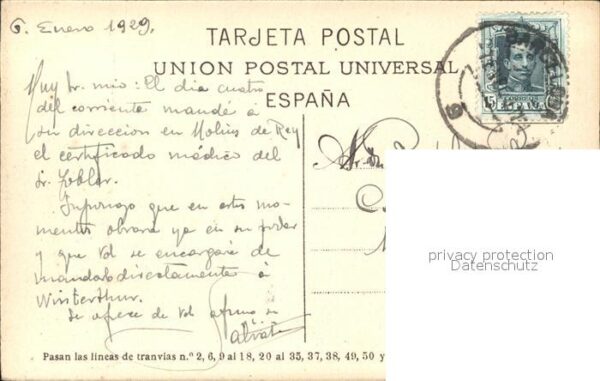 6. Enero 1929.
TARJETA POSTAL
UNION POSTAL UNIVERSAL
ESPAÑA
Muy Sr. mio: El dia cuatro
del corriente mandé á
su direccion en Molins de Rey
el certificado médico del
Sr.
Supongo que en estos mo-
mentos obrará ya en su poder
y que Vd se encargará de
mandarlo directamente á
Winterthur.
Se ofrece de Vd afmo
15
ESPAÑA
BARCELONA
6
privacy protection
Datenschutz
Pasan las lineas de tranvias n.º 2, 6, 9 al 18, 20 al 35, 37, 38, 49, 50 y